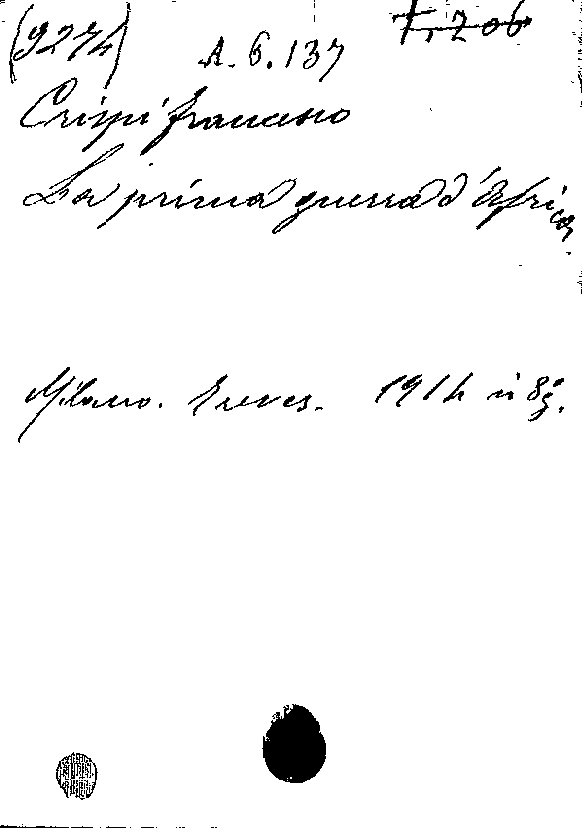 (9274) A. 6. 137 F. 2 06
Crispi francesco
La prima guerra d'Africa
Milano. Treves. 1914 in 8º.